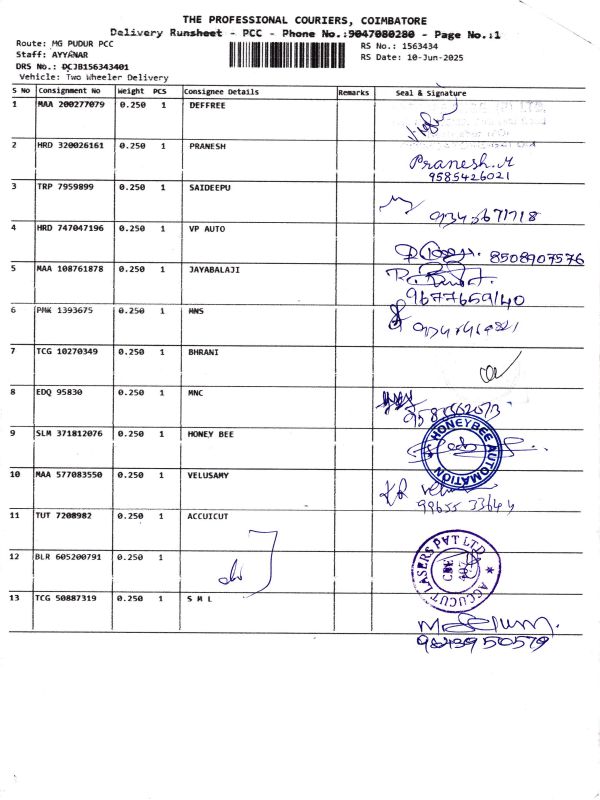 THE PROFESSIONAL COURIERS, COIMBATORE
Delivery Runsheet - PCC - Phone No.:9047080280 - Page No.:1
Route: MG PUDUR PCC
Staff: AYYANAR
DRS No.: DCJB156343401
Vehicle: Two Wheeler Delivery
RS No.: 1563434
RS Date: 10-Jun-2025
S No Consignment No Weight PCS Consignee Details Remarks Seal & Signature
1 MAA 200277079 0.250 1 DEFFREE
2 HRD 320026161 0.250 1 PRANESH Pranesh.M
9585426021
3 TRP 7959899 0.250 1 SAIDEEPU
4 HRD 747047196 0.250 1 VP AUTO 8508907576
5 MAA 108761878 0.250 1 JAYABALAJI
9677659140
6 PMK 1393675 0.250 1 MNS
7 TCG 10270349 0.250 1 BHRANI
8 EDQ 95830 0.250 1 MNC
9 SLM 371812076 0.250 1 HONEY BEE HONEYBEE AUTOMATION
10 MAA 577083550 0.250 1 VELUSAMY
99655 33644
11 TUT 7208982 0.250 1 ACCUICUT
12 BLR 605200791 0.250 1 ACCUCUT LASERS PVT LTD
13 TCG 50887319 0.250 1 S M L
98439 50579